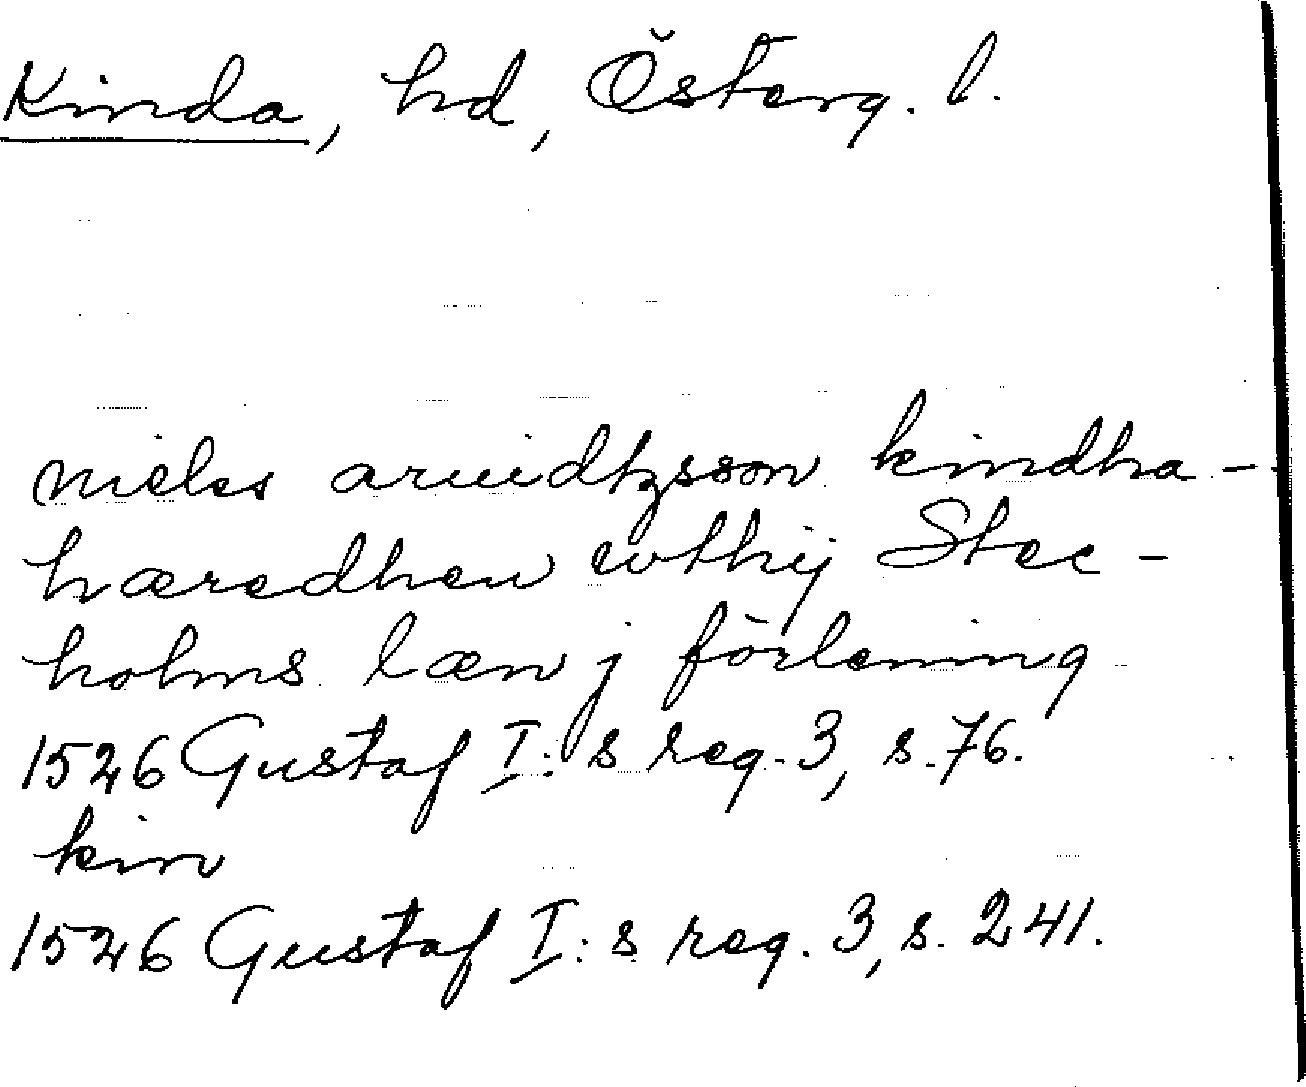 Kinda, hd, Österg. l.
niels aruidtzsson kindha-
hæredhen wthij Stec-
holms læn j förlening
1526 Gustaf I:s reg. 3, s. 76.
kin
1526 Gustaf I:s reg. 3, s. 241.